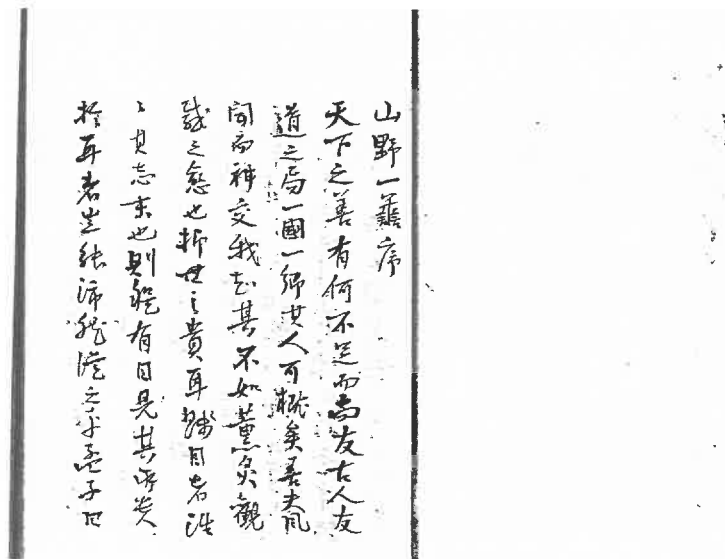 山野一善序
天下之善有何不足而尚友古人友
道之局一國一鄉其人可概矣善夫風
聞而神交我知其不如薰炙觀
感之愈也抑世之貴耳賤目者滔
〻其志末也則雖有目見其所美
於耳者豈能沛然從之乎孟子曰